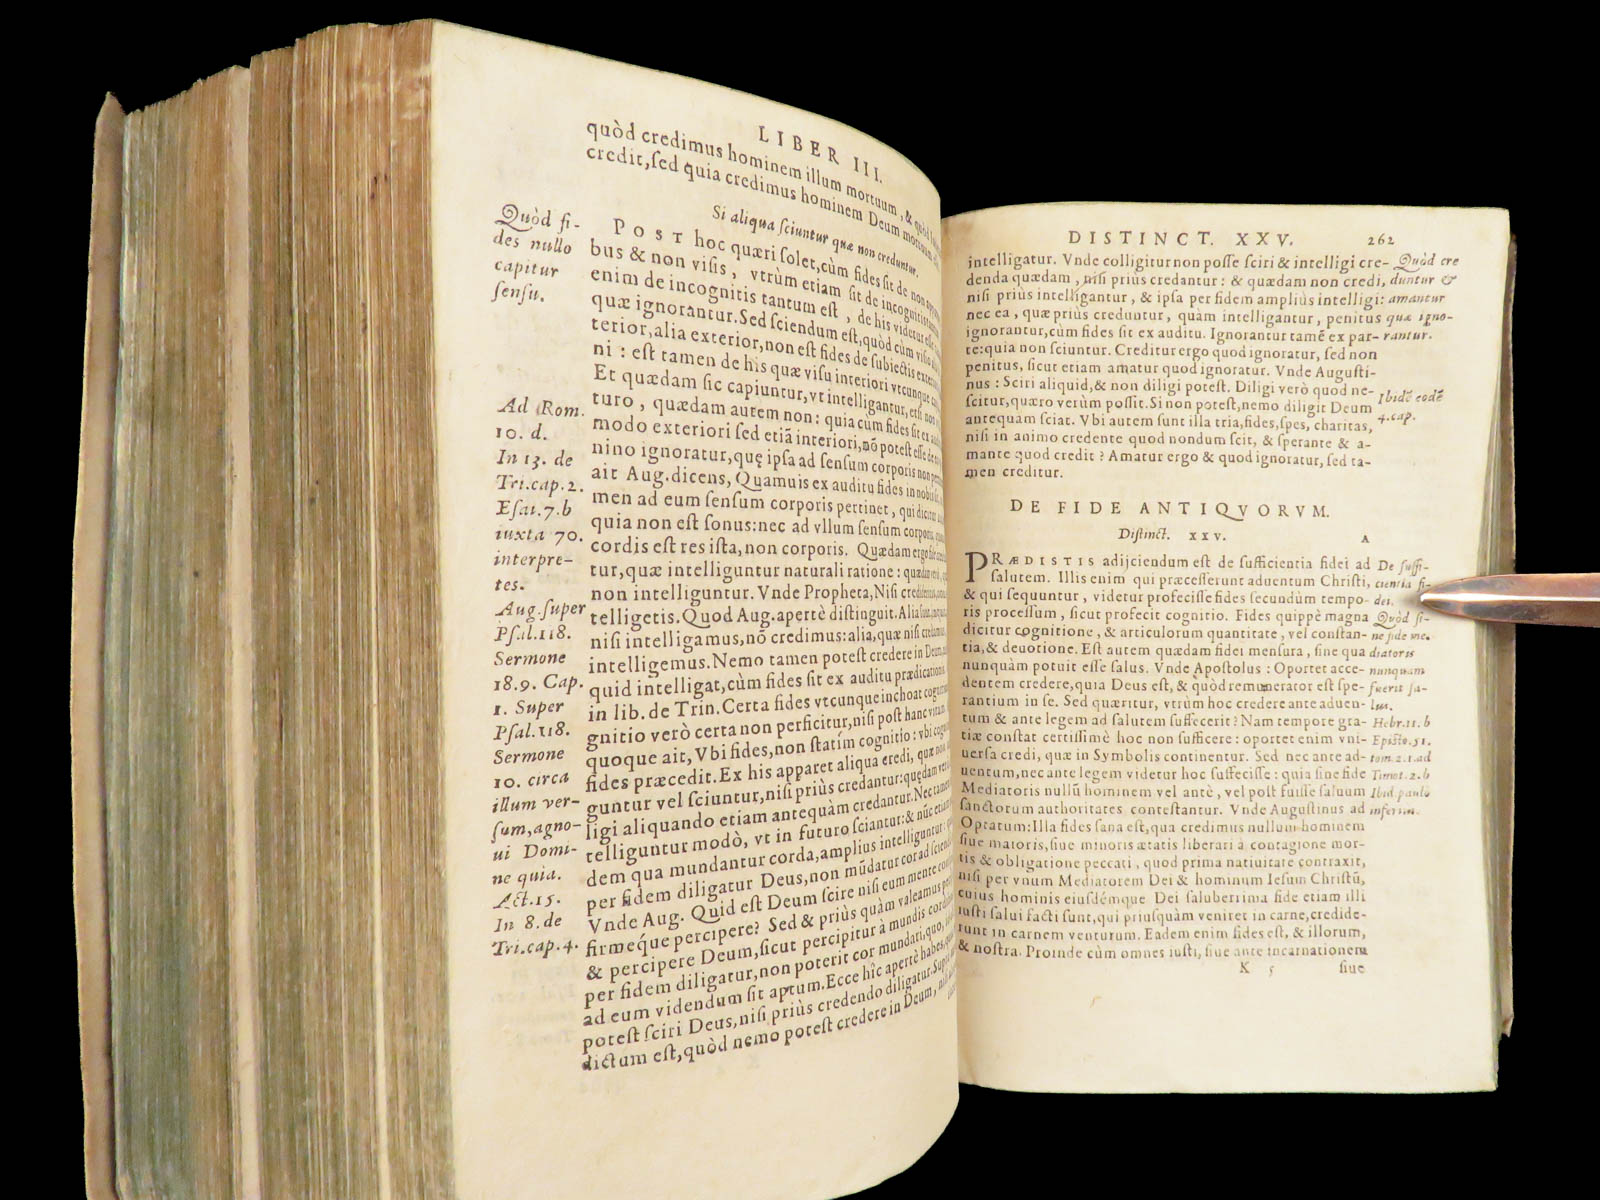 LIBER III.
quòd credimus hominem illum mortuum, & quòd
credit, sed quia credimus hominem Deum mortuum
Si aliqua sciuntur quæ non creduntur.
Quòd fi-
des nullo
capitur
sensu.
POST hoc quæri solet, cùm fides sit de non
bus & non visis, vtrùm etiam sit de incognitis
enim de incognitis tantum est, de his videtur esse
quæ ignorantur. Sed sciendum est, quòd cùm visio
terior, alia exterior, non est fides de subiectis
ni: est tamen de his quæ visu interiori vtcunque
Et quædam sic capiuntur, vt intelligantur, etsi non
turo, quædam autem non: quia cùm fides sit ex
modo exteriori sed etiã interiori, nõ potest esse de
nino ignoratur, quę ipsa ad sensum corporis non
ait Aug. dicens, Quamuis ex auditu fides in nobis
men ad eum sensum corporis pertinet, qui dicitur
quia non est sonus: nec ad vllum sensum
cordis est res ista, non corporis. Quædam ergo
tur, quæ intelliguntur naturali ratione: quædam
non intelliguntur. Vnde Propheta, Nisi
telligetis. Quod Aug. apertè distinguit. Alia sunt,
nisi intelligamus, nõ credimus: alia, quæ nisi
intelligemus. Nemo tamen potest credere in Deum,
quid intelligat, cùm fides sit ex auditu
in lib. de Trin. Certa fides vtcunque inchoat
gnitio verò certa non perficitur, nisi post hanc
quoque ait, Vbi fides, non statím cognitio: vbi
fides præcedit. Ex his apparet aliqua credi, quæ non
guntur vel sciuntur, nisi priùs credantur: quędam
ligi aliquando etiam antequàm credantur. Nec tamen
telliguntur modò, vt in futuro sciantur: & nũc
dem qua mundantur corda, amplius intelliguntur:
per fidem diligatur Deus, non mũdatur cor ad
Vnde Aug. Quid est Deum scire nisi eum mente
firmeque percipere? Sed & priùs quàm valeamus
& percipere Deum, sicut percipitur à mundis
per fidem diligatur, non poterit cor mundari, quo,
ad eum videndum sit aptum. Ecce hîc apertè habes,
potest sciri Deus, nisi priùs credendo diligatur.
dictum est, quòd nemo potest credere in Deum,
Ad Rom.
10. d.
In 13. de
Tri. cap. 2.
Esai. 7. b
iuxta 70.
interpre-
tes.
Aug. super
Psal. 118.
Sermone
18. 9. Cap.
1. Super
Psal. 118.
Sermone
10. circa
illum ver-
sum, agno-
ui Domi-
ne quia.
Act. 15.
In 8. de
Tri. cap. 4.
DISTINCT. XXV. 262
intelligatur. Vnde colligitur non posse sciri & intelligi cre-
denda quædam, nisi prius credantur: & quædam non credi,
nisi priùs intelligantur, & ipsa per fidem ampliùs intelligi:
nec ea, quæ priùs creduntur, quàm intelligantur, penitus
ignorantur, cùm fides sit ex auditu. Ignorantur tamẽ ex par-
te: quia non sciuntur. Creditur ergo quod ignoratur, sed non
penitus, sicut etiam amatur quod ignoratur. Vnde Augusti-
nus: Sciri aliquid, & non diligi potest. Diligi verò quod ne-
scitur, quæro verùm possit. Si non potest, nemo diligit Deum
antequam sciat. Vbi autem sunt illa tria, fides, spes, charitas,
nisi in animo credente quod nondum scit, & sperante & a-
mante quod credit? Amatur ergo & quod ignoratur, sed ta-
men creditur.
Quòd cre
duntur &
amantur
quæ igno-
rantur.
Ibidẽ eodẽ
4. cap.
DE FIDE ANTIQVORVM.
Distinct. XXV. A
PRÆDISTIS adijciendum est de sufficientia fidei ad
salutem. Illis enim qui præcesserunt aduentum Christi,
& qui sequuntur, videtur profecisse fides secundùm tempo-
ris processum, sicut profecit cognitio. Fides quippè magna
dicitur cognitione, & articulorum quantitate, vel constan-
tia, & deuotione. Est autem quædam fidei mensura, sine qua
nunquàm potuit esse salus. Vnde Apostolus: Oportet acce-
dentem credere, quia Deus est, & quòd remunerator est spe-
rantium in se. Sed quæritur, vtrùm hoc credere ante aduen-
tum & ante legem ad salutem suffecerit? Nam tempore gra-
tiæ constat certissimè hoc non sufficere: oportet enim vni-
uersa credi, quæ in Symbolis continentur. Sed nec ante ad-
uentum, nec ante legem videtur hoc suffecisse: quia sine fide
Mediatoris nullũ hominem vel antè, vel pòst fuisse saluum
sanctorum authoritates contestantur. Vnde Augustinus ad
Optatum: Illa fides sana est, qua credimus nullum hominem
siue maioris, siue minoris ætatis liberari à contagione mor-
tis & obligatione peccati, quod prima natiuitate contraxit,
nisi per vnum Mediatorem Dei & hominum Iesum Christũ,
cuius hominis eiusdémque Dei saluberrima fide etiam illi
iusti salui facti sunt, qui priusquàm veniret in carne, credide-
runt in carnem venturum. Eadem enim fides est, & illorum,
& nostra. Proinde cùm omnes iusti, siue ante incarnationem
K 5 siue
De suffi-
cientia fi-
dei.
Quòd si-
ne fide me-
diatoris
nunquam
fuerit sa-
lus.
Hebr. 11. b
Epist. 51.
tom. 2. 1. ad
Timot. 2. b
Ibid. paulò
inferiùs.